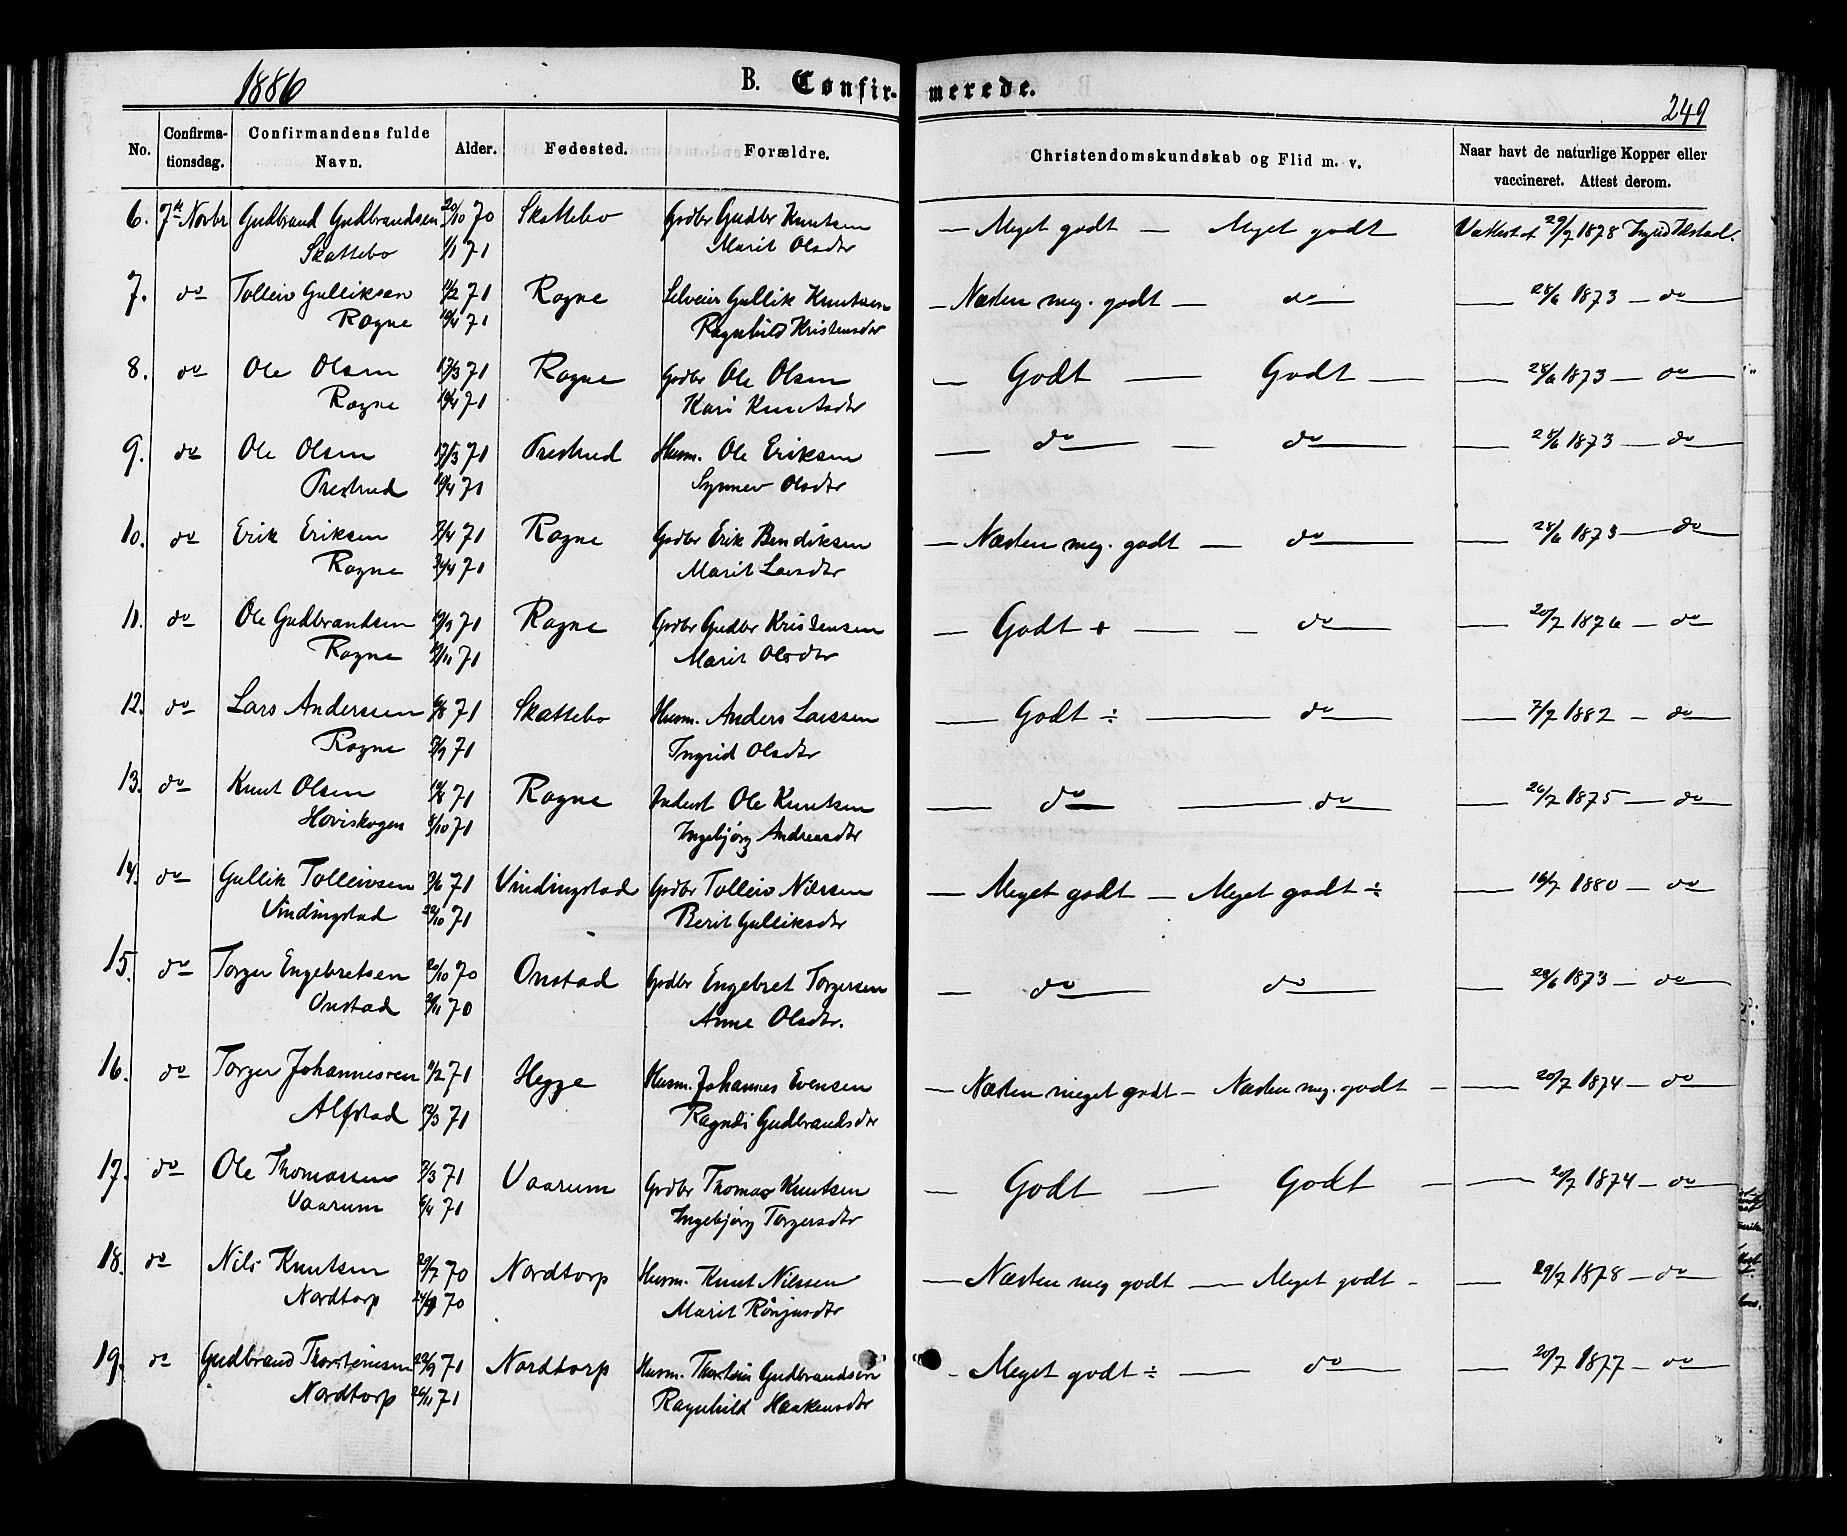 1886
B. Confirmerede.
249
No.
Confirmationsdag.
Confirmandens fulde Navn.
Alder.
Fødested.
Forældre.
Christendomskundskab og Flid m. v.
Naar havt de naturlige Kopper eller vaccineret. Attest derom.
6. 7de Novbr Gudbrand Gudbrandsen 20/10 70 Skattebo Grdbr Gudbr Knutsen — Meget godt — Meget godt 29/7 1878
Skattebo 1/1 71 Marit Olsdtr
7. do Tolleiv Gulliksen 71 Rogne Selveier Gullik Knutsen — Næsten meg. godt — do — 28/6 1873 — do
Rogne 71 Ragnhild Kristensdtr
8. do Ole Olsen 71 Rogne Grdbr Ole Olsen — Godt — Godt — — 28/6 1873 — do
Rogne 71 Kari Knutsdtr
9. do Ole Olsen 17/3 71 Prestrud Husm. Ole Eriksen — do — do — 28/6 1873 — do
Prestrud 71 Synnev Olsdtr
10. do Erik Eriksen 71 Rogne Grdbr Erik Bendiksen — Næsten meg. godt — do — 28/6 1873 — do
Rogne 71 Marit Larsdtr
11. do Ole Gudbrandsen 71 Rogne Grdbr Gudbr Kristensen — Godt + — do — 20/7 1876 — do
Rogne 71 Marit Olsdtr
12. do Lars Andersen 71 Skattebo Husm. Anders Larssen — Godt ÷ — do — 7/7 1882 — do
Rogne 71 Ingrid Olsdtr
13. do Knut Olsen 71 Rogne Inderst Ole Knutsen — do — do — 20/7 1875 — do
Høviskogen 8/10 71 Ingebjørg Andreasdtr
14. do Gullik Tolleivsen 71 Vindingstad Grdbr Tolleiv Nilssen — Meget godt — Meget godt ÷ — 16/7 1880 — do
Vindingstad 71 Berit Gulliksdtr
15. do Torger Engebretsen 20/10 70 Onstad Grdbr Engebret Torgersen — do — do — 28/6 1873 — do
Onstad 70 Anne Olsdtr.
16. do Torger Johannessen 71 Hegge Husm. Johannes Evensen — Næsten meget godt — Næsten meg. godt — — 20/7 1874 — do
Alfstad 12/3 71 Ragndi Gudbrandsdtr
17. do Ole Thomassen 71 Vaarum Grdbr Thomas Knutsen — Godt — Godt — — 20/7 1874 — do
Vaarum 71 Ingebjørg Torgersdtr
18. do Nils Knutsen 29/7 70 Nordtorp Husm. Knut Nilssen — Næsten meg godt — Meget godt — — 29/7 1878 — do
Nordtorp 70 Marit Rønjusdtr
19. do Gudbrand Thorsteinsen 71 Nordtorp Husm. Thorstein Gudbrandsen — Meget godt ÷ — do — 20/7 1877 — do
Nordtorp 26/11 71 Ragnhild Haakensdtr